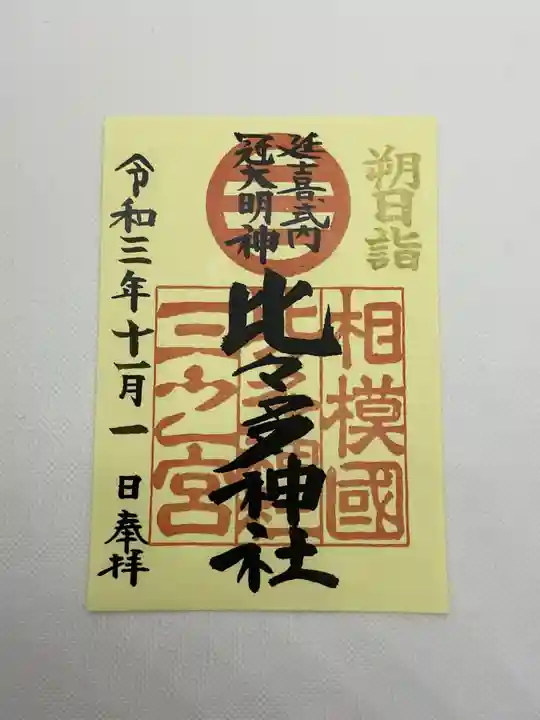 朔日詣
延喜式内
冠大明神
比々多神社
相模國
比々多神社
三ノ宮
令和三年十一月一日奉拝